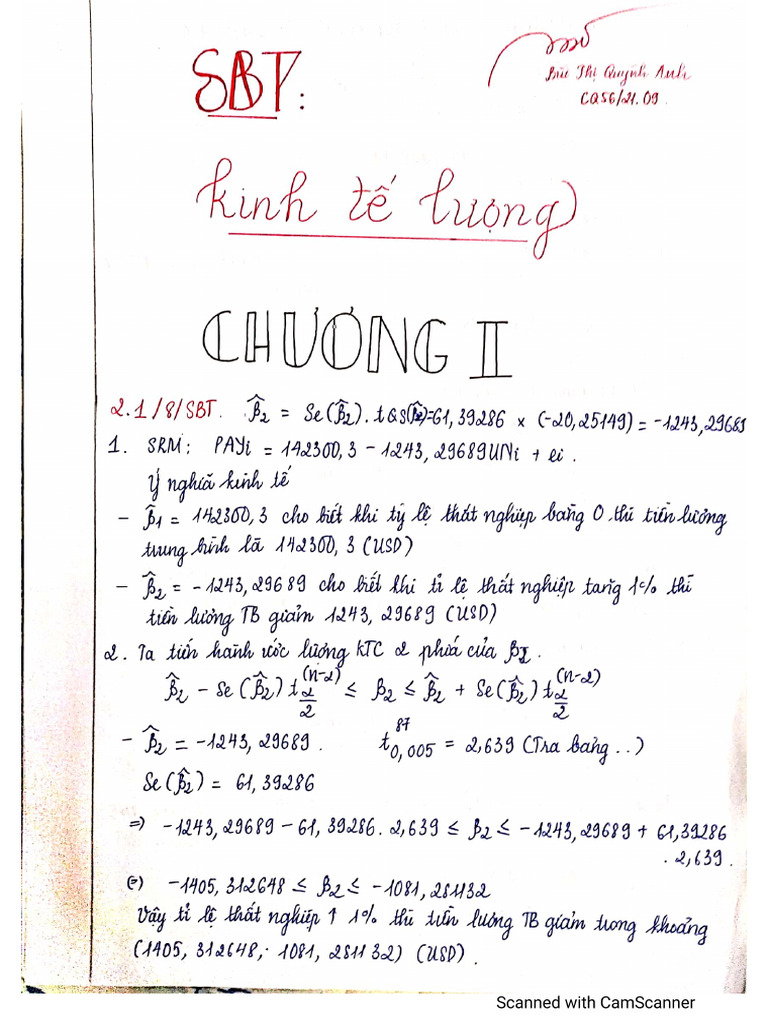 SBT:
Bùi Thị Quỳnh Anh
CQ56/21.09
kinh tế lượng
CHƯƠNG II
2.1/8/SBT. β̂₂ = Se(β̂₂).tQS(β̂₂)=61,39286 x (-20,25149) = -1243,29689
1. SRM: PAYi = 142300,3 - 1243,29689UNi + ei.
Ý nghĩa kinh tế
- β̂₁ = 142300,3 cho biết khi tỷ lệ thất nghiệp bằng 0 thì tiền lương
trung bình là 142300,3 (USD)
- β̂₂ = -1243,29689 cho biết khi tỉ lệ thất nghiệp tăng 1% thì
tiền lương TB giảm 1243,29689 (USD)
2. Ta tiến hành ước lượng KTC 2 phía của β₂.
β̂₂ - Se(β̂₂) t_(α/2)^(n-2) ≤ β₂ ≤ β̂₂ + Se(β̂₂) t_(α/2)^(n-2)
- β̂₂ = -1243,29689. t_0,005^87 = 2,639 (Tra bảng..)
Se(β̂₂) = 61,39286
=> -1243,29689 - 61,39286.2,639 ≤ β₂ ≤ -1243,29689 + 61,39286
.2,639.
(=) -1405,312648 ≤ β₂ ≤ -1081,281132
Vậy tỉ lệ thất nghiệp ↑ 1% thì tiền lương TB giảm trong khoảng
(1405,312648; 1081,281132) (USD).
Scanned with CamScanner